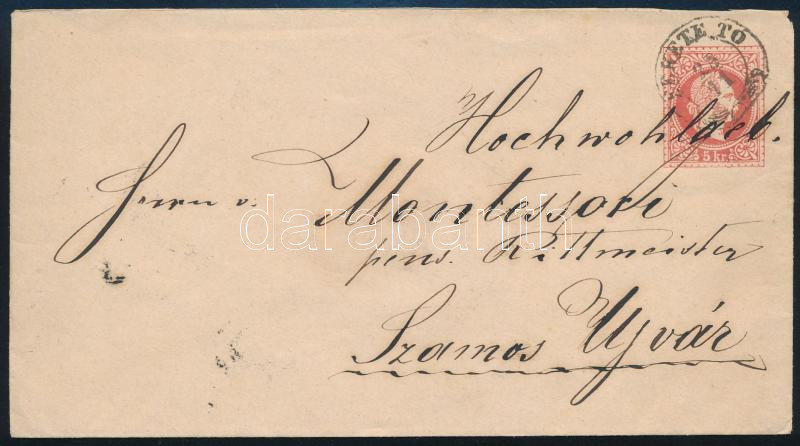 FEKETE TÓ
5 kr.
Hochwohlgeb.
Herrn v. Montessori
pens. Rittmeister
Szamos Ujvár
darabanth